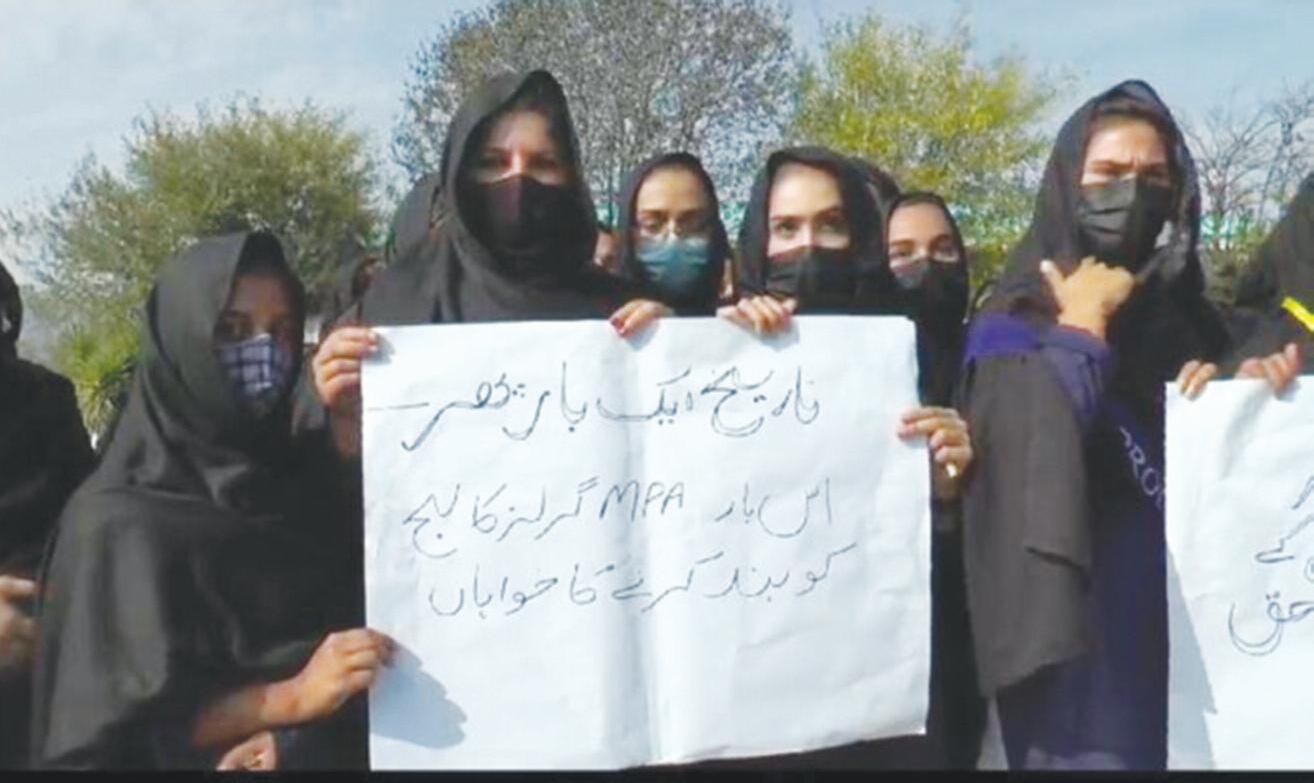 تاریخ ایک بار پھر
اس بار MPA گرلز کالج
کو بند کرنے کا خواہاں
PRO
کے
حق